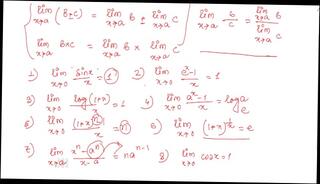 lim x→a (B±C) = lim x→a B ± lim x→a C
lim x→a B×C = lim x→a B × lim x→a C
lim x→a B/C = lim x→a B / lim x→a C
1) lim x→0 sinx/x = 1 2) lim x→0 (e^x-1)/x = 1
3) lim x→0 log(1+x)/x = 1 4) lim x→0 (a^x-1)/x = log a
5) lim x→0 = n 6) lim x→0 (1+x)^(1/x) = e
7) lim x→a (x^n-a^n)/(x-a) = na^(n-1) 8) lim x→0 cosx=1